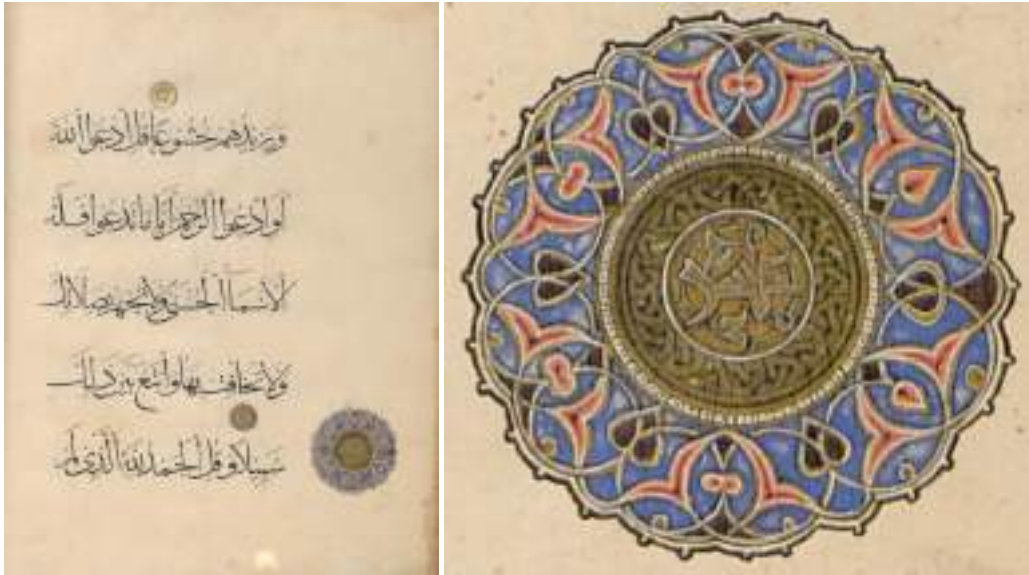 ويزيدهم خشوعا قل ادعوا الله
او ادعوا الرحمن ايا ما تدعوا فله
الاسما الحسنى ولا تجهر بصلاتك
ولا تخافت بها وابتغ بين ذلك
سبيلا وقل الحمد لله الذي لم